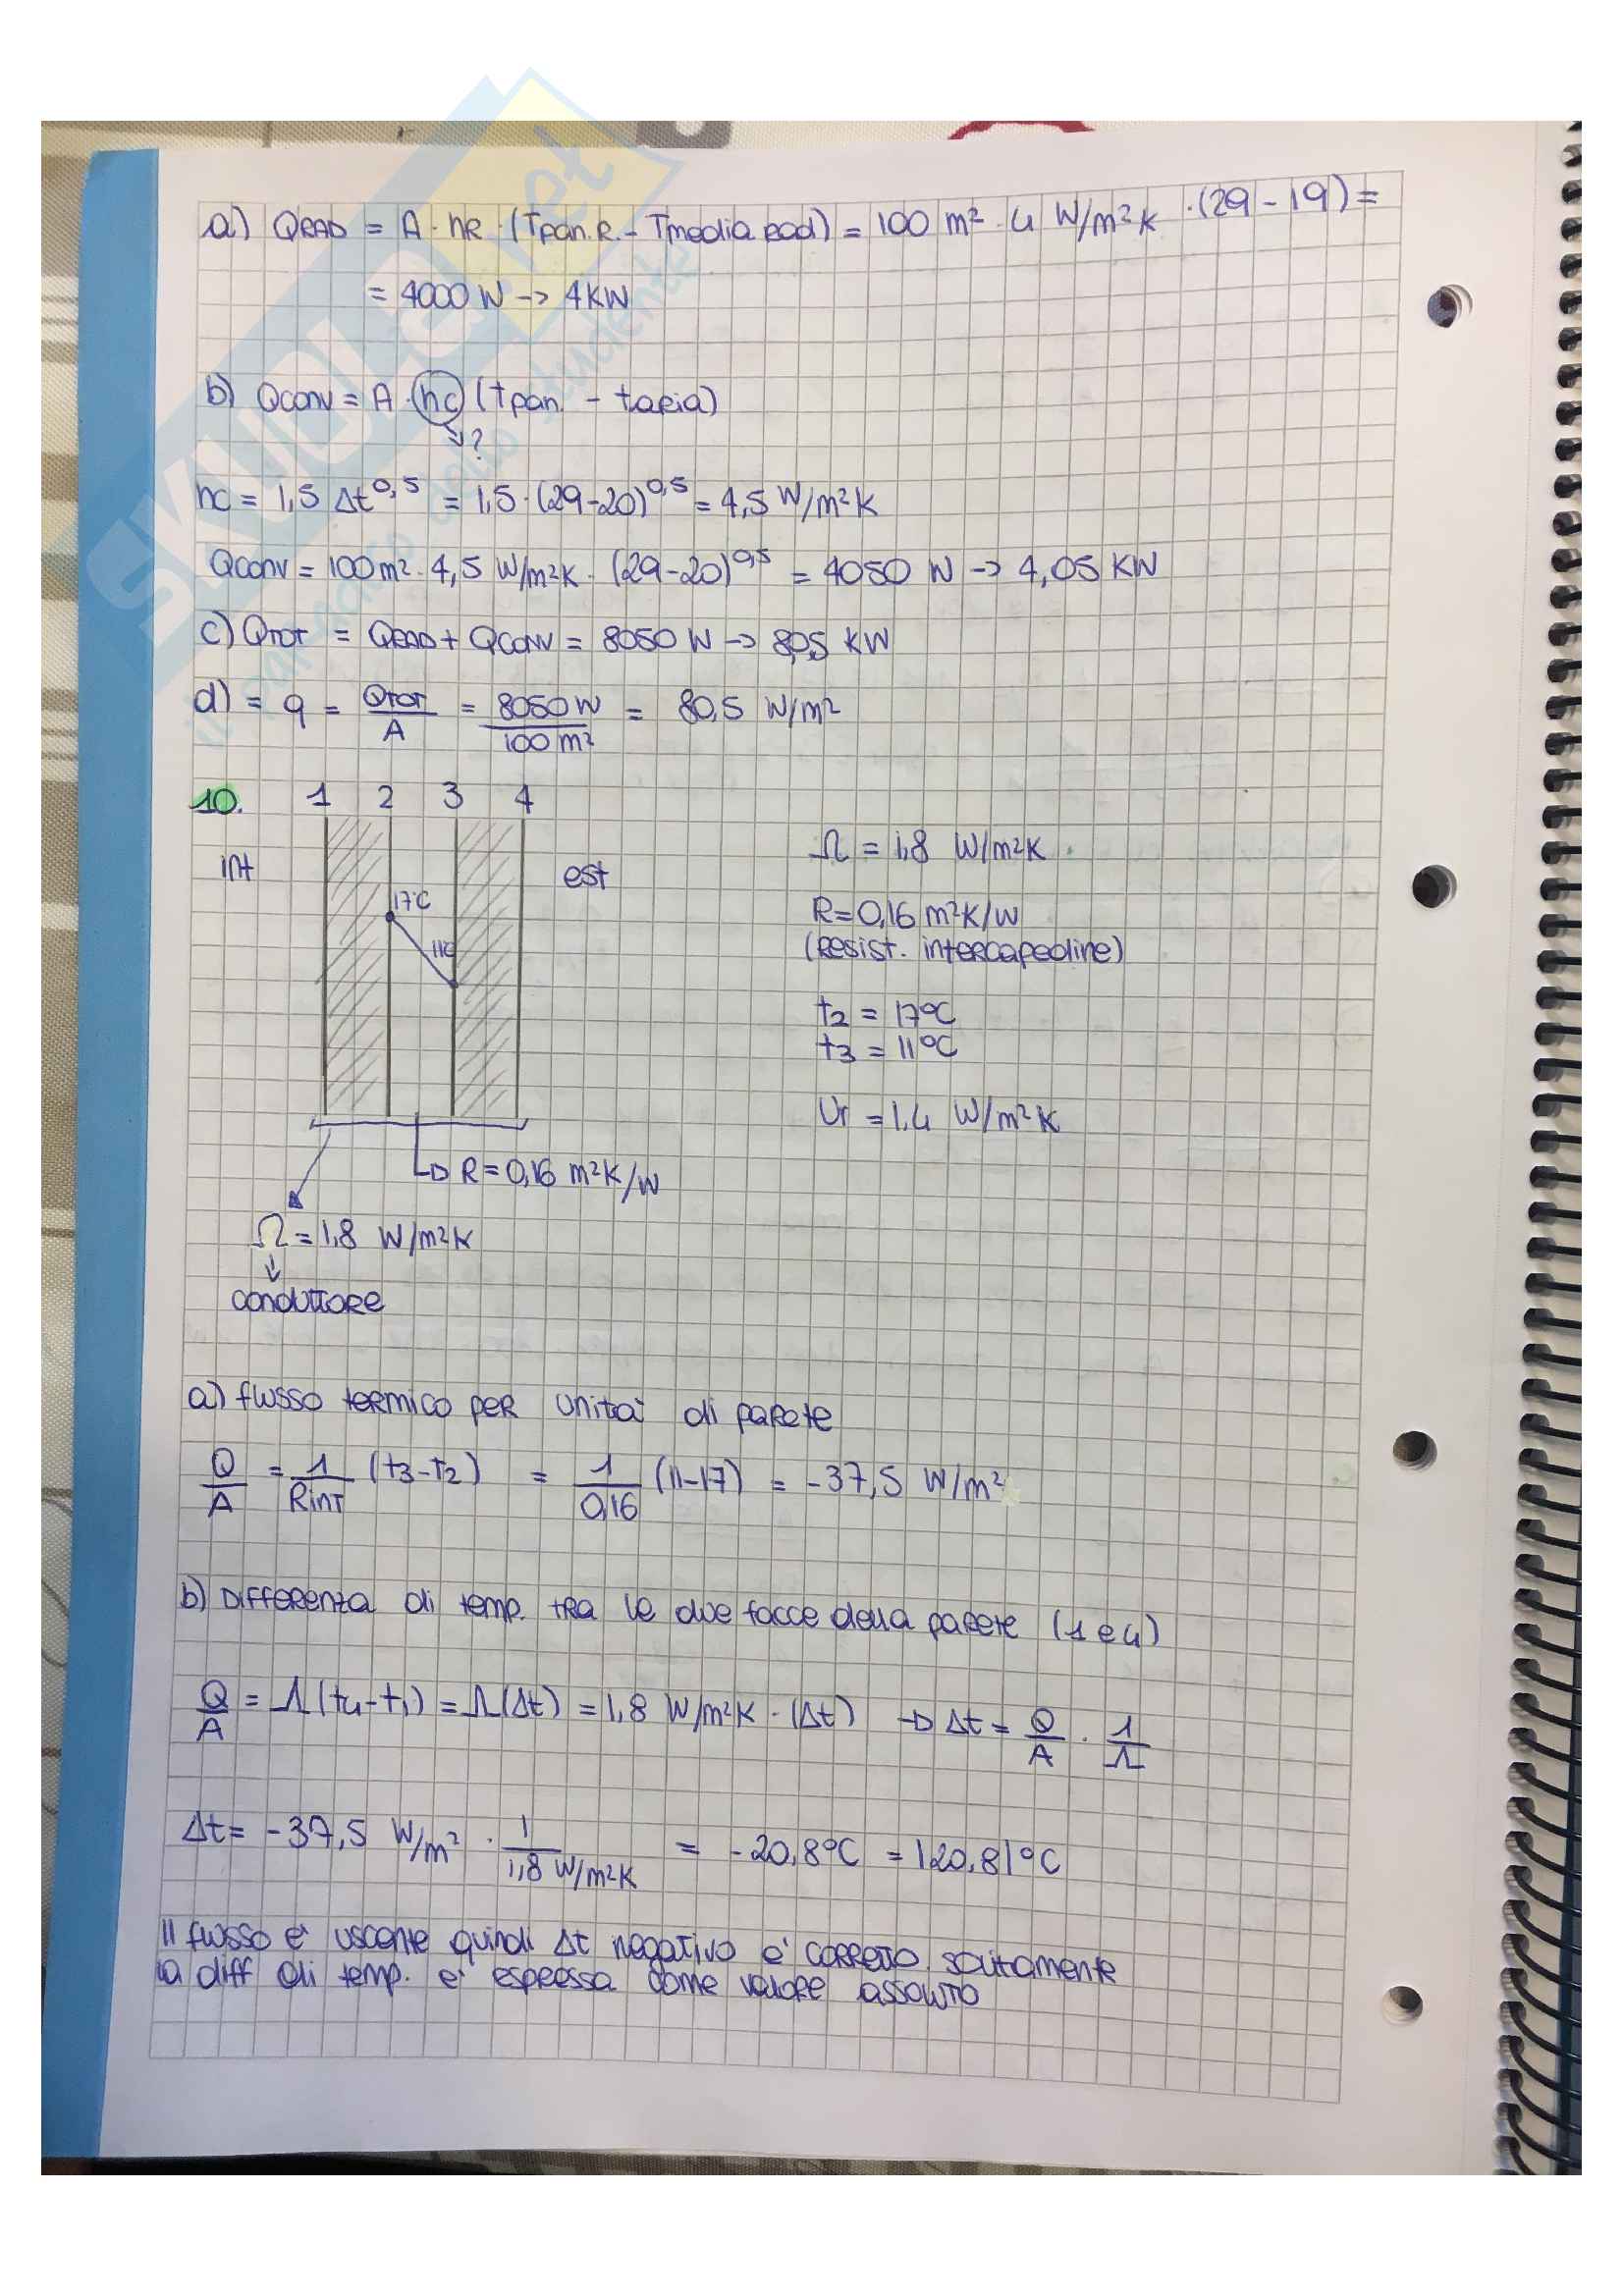 a) QRAD = A · hR · (Tpan.R. - Tmedia rad) = 100 m² · 4 W/m²K · (29-19) =
= 4000 W -> 4 KW
b) Qconv = A · hc (tpan. - taria)
?
hc = 1,5 Δt^0,5 = 1,5 · (29-20)^0,5 = 4,5 W/m²K
Qconv = 100 m² · 4,5 W/m²K · (29-20)^0,5 = 4050 W -> 4,05 KW
c) QTOT = QRAD + QCONV = 8050 W -> 80,5 KW
d) = q = QTOT/A = 8050 W/100 m² = 80,5 W/m²
10. 1 2 3 4
int est
17°C
11°C
Λ = 1,8 W/m²K
R = 0,16 m²K/W
(resist. intercapedine)
t2 = 17°C
t3 = 11°C
Ur = 1,4 W/m²K
R = 0,16 m²K/W
Λ = 1,8 W/m²K
conduttore
a) flusso termico per unità di parete
Q/A = 1/Rint (t3-t2) = 1/0,16 (11-17) = -37,5 W/m²
b) Differenza di temp. tra le due facce della parete (1 e 4)
Q/A = Λ(t4-t1) = Λ(Δt) = 1,8 W/m²K · (Δt) -> Δt = Q/A · 1/Λ
Δt = -37,5 W/m² · 1/1,8 W/m²K = -20,8°C = |20,8|°C
Il flusso è uscente quindi Δt negativo è corretto, solitamente
la diff di temp. è espressa come valore assoluto
SKUOLA.net